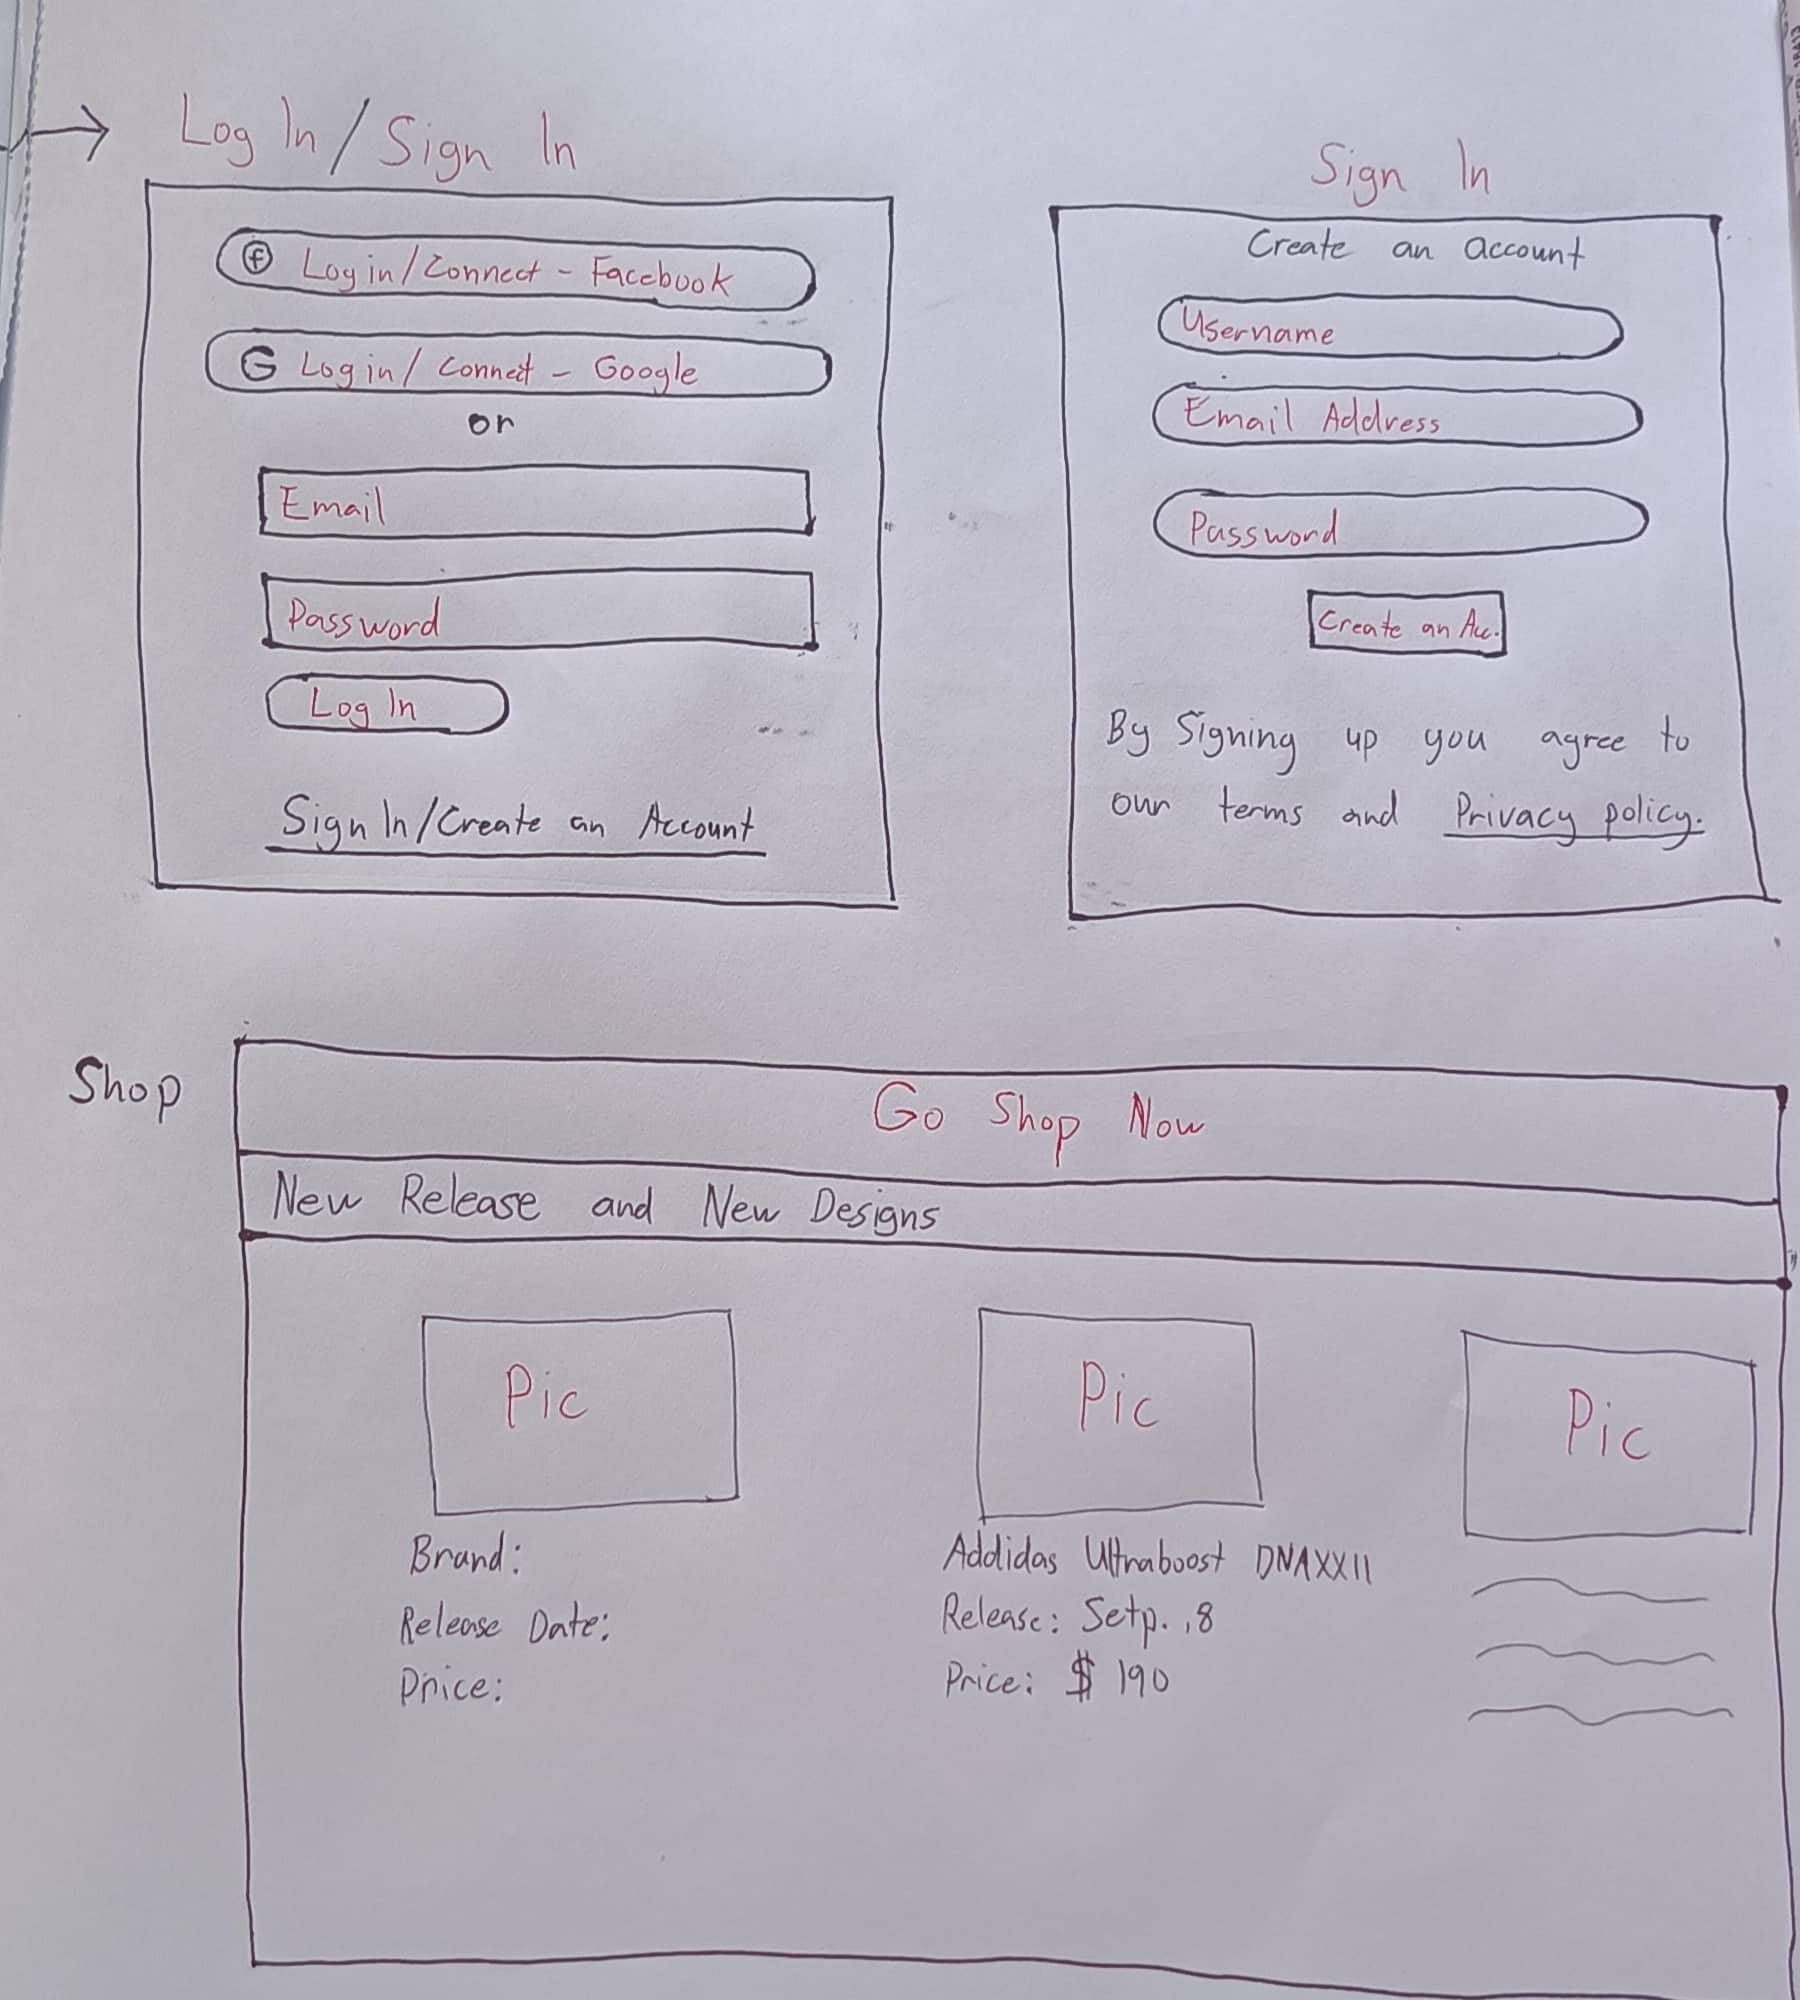 Log In / Sign In
f Login/Connect - Facebook
G Login/Connect - Google
or
Email
Password
Log In
Sign In/Create an Account
Sign In
Create an account
Username
Email Address
Password
Create an Acc.
By Signing up you agree to
our terms and Privacy policy.
Shop
Go Shop Now
New Release and New Designs
Pic
Brand:
Release Date:
Price:
Pic
Addidas Ultraboost DNAXXII
Release: Setp. ,8
Price: $ 190
Pic